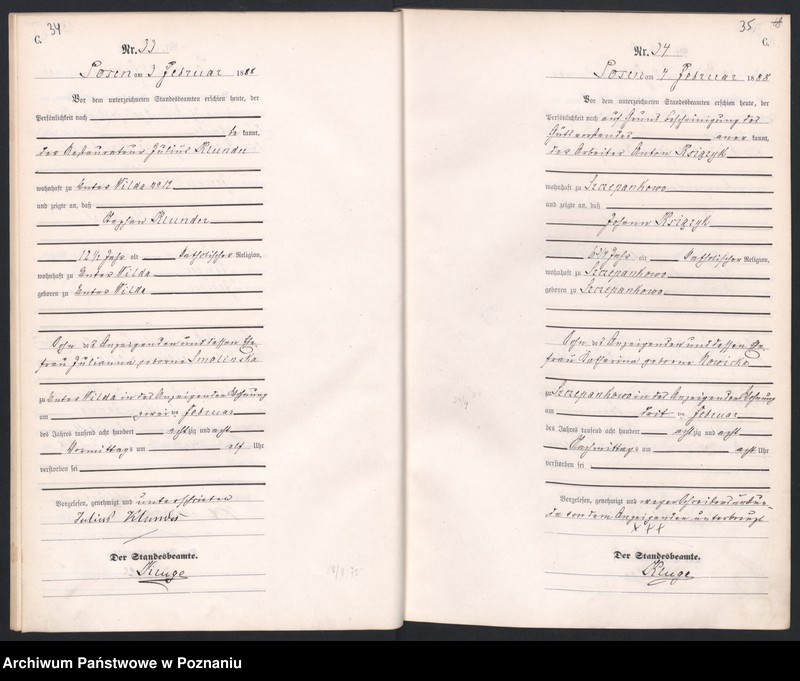 34
C.
Nr. 33
Posen am 3 Februar 1888
Vor dem unterzeichneten Standesbeamten erschien heute, der
Persönlichkeit nach
be kannt,
der Restaurateur Julius Klunder
wohnhaft zu Unter Wilda No 12
und zeigte an, daß
Stephan Klunder
12 1/2 Jahr alt katholischer Religion,
wohnhaft zu Unter Wilda
geboren zu Unter Wilda
Sohn des Anzeigenden und dessen Ehe
frau Julianna geborene Smolinska
zu Unter Wilda in des Anzeigenden Wohnung
am zwei ten Februar
des Jahres tausend acht hundert achtzig und acht
Vormittags um elf Uhr
verstorben sei
Vorgelesen, genehmigt und unterschrieben
Julius Klunder
Der Standesbeamte.
Kluge
35
C.
Nr. 34
Posen am 4 Februar 1888
Vor dem unterzeichneten Standesbeamten erschien heute, der
Persönlichkeit nach auf Grund Bescheinigung des
Gutsvorstandes aner kannt,
der Arbeiter Anton Księżyk
wohnhaft zu Szczepankowo
und zeigte an, daß
Johann Księżyk
Jahr alt katholischer Religion,
wohnhaft zu Szczepankowo
geboren zu Szczepankowo
Sohn des Anzeigenden und dessen Ehe
frau Katharina geborene Nowicka
zu Szczepankowo in des Anzeigenden Wohnung
am drit ten Februar
des Jahres tausend acht hundert achtzig und acht
Nachmittags um acht Uhr
verstorben sei
Vorgelesen, genehmigt und wegen Schreibensunkun-
de von dem Anzeigenden unterkreuzt
+++
Der Standesbeamte.
Kluge
Archiwum Państwowe w Poznaniu